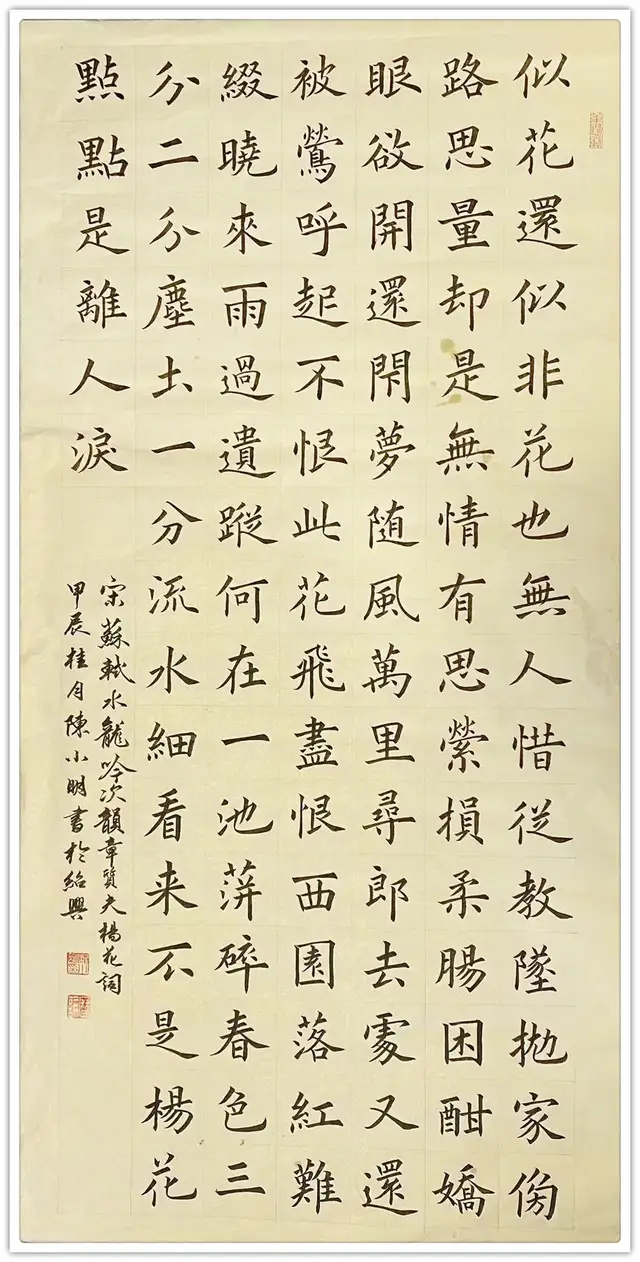 似花還似非花也無人惜從教墜抛家傍
路思量却是無情有思縈損柔腸困酣嬌
眼欲開還閇夢随風萬里尋郎去處又還
被鶯呼起不恨此花飛盡恨西園落紅難
綴曉來雨過遺蹤何在一池萍碎春色三
分二分塵土一分流水細看来不是楊花
點點是離人淚
宋蘇軾水龍吟次韻章質夫楊花詞
甲辰桂月陳小明書於紹興